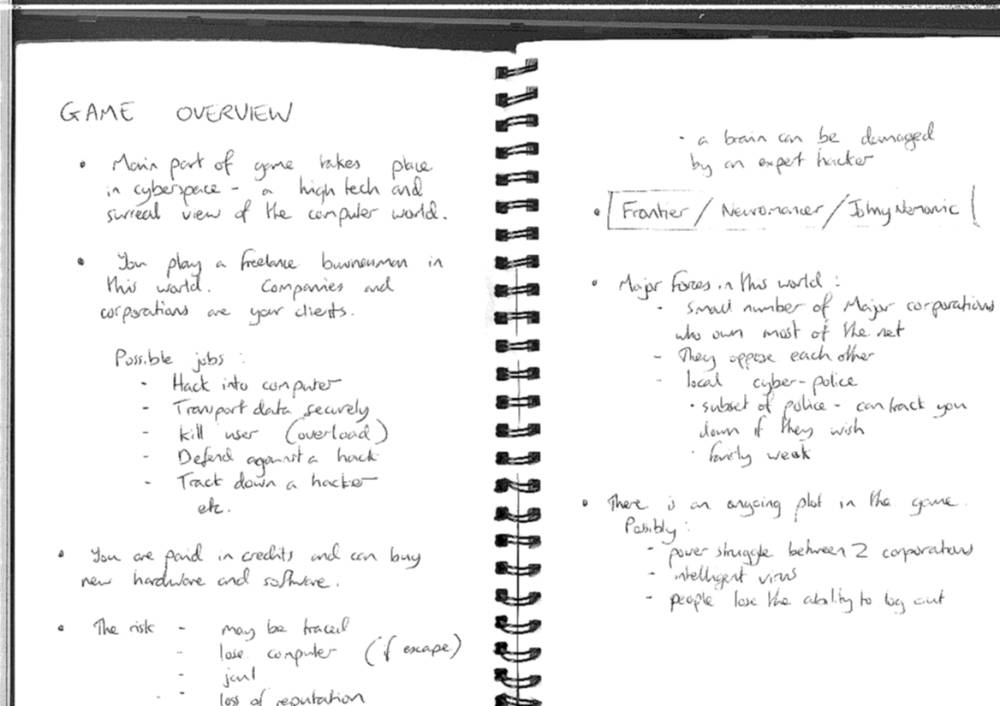 GAME OVERVIEW
• Main part of game takes place
in cyberspace - a high tech and
surreal view of the computer world.
• You play a freelance businessman in
this world. Companies and
corporations are your clients.
Possible jobs :
- Hack into computer
- Transport data securely
- Kill user (overload)
- Defend against a hack
- Track down a hacker
etc.
• You are paid in credits and can buy
new hardware and software.
• The risk - may be traced
- lose computer (if escape)
- jail
- loss of reputation
· a brain can be damaged
by an expert hacker
• Frontier / Neuromancer / Johny Nemonic
• Major Forces in this world :
- Small number of Major corporations
who own most of the net
- They oppose each other
- local cyber-police
· subset of police - can track you
down if they wish
· fairly weak
• There is an ongoing plot in the game.
Possibly :
- power struggle between 2 corporations
- intelligent virus
- people lose the ability to log out